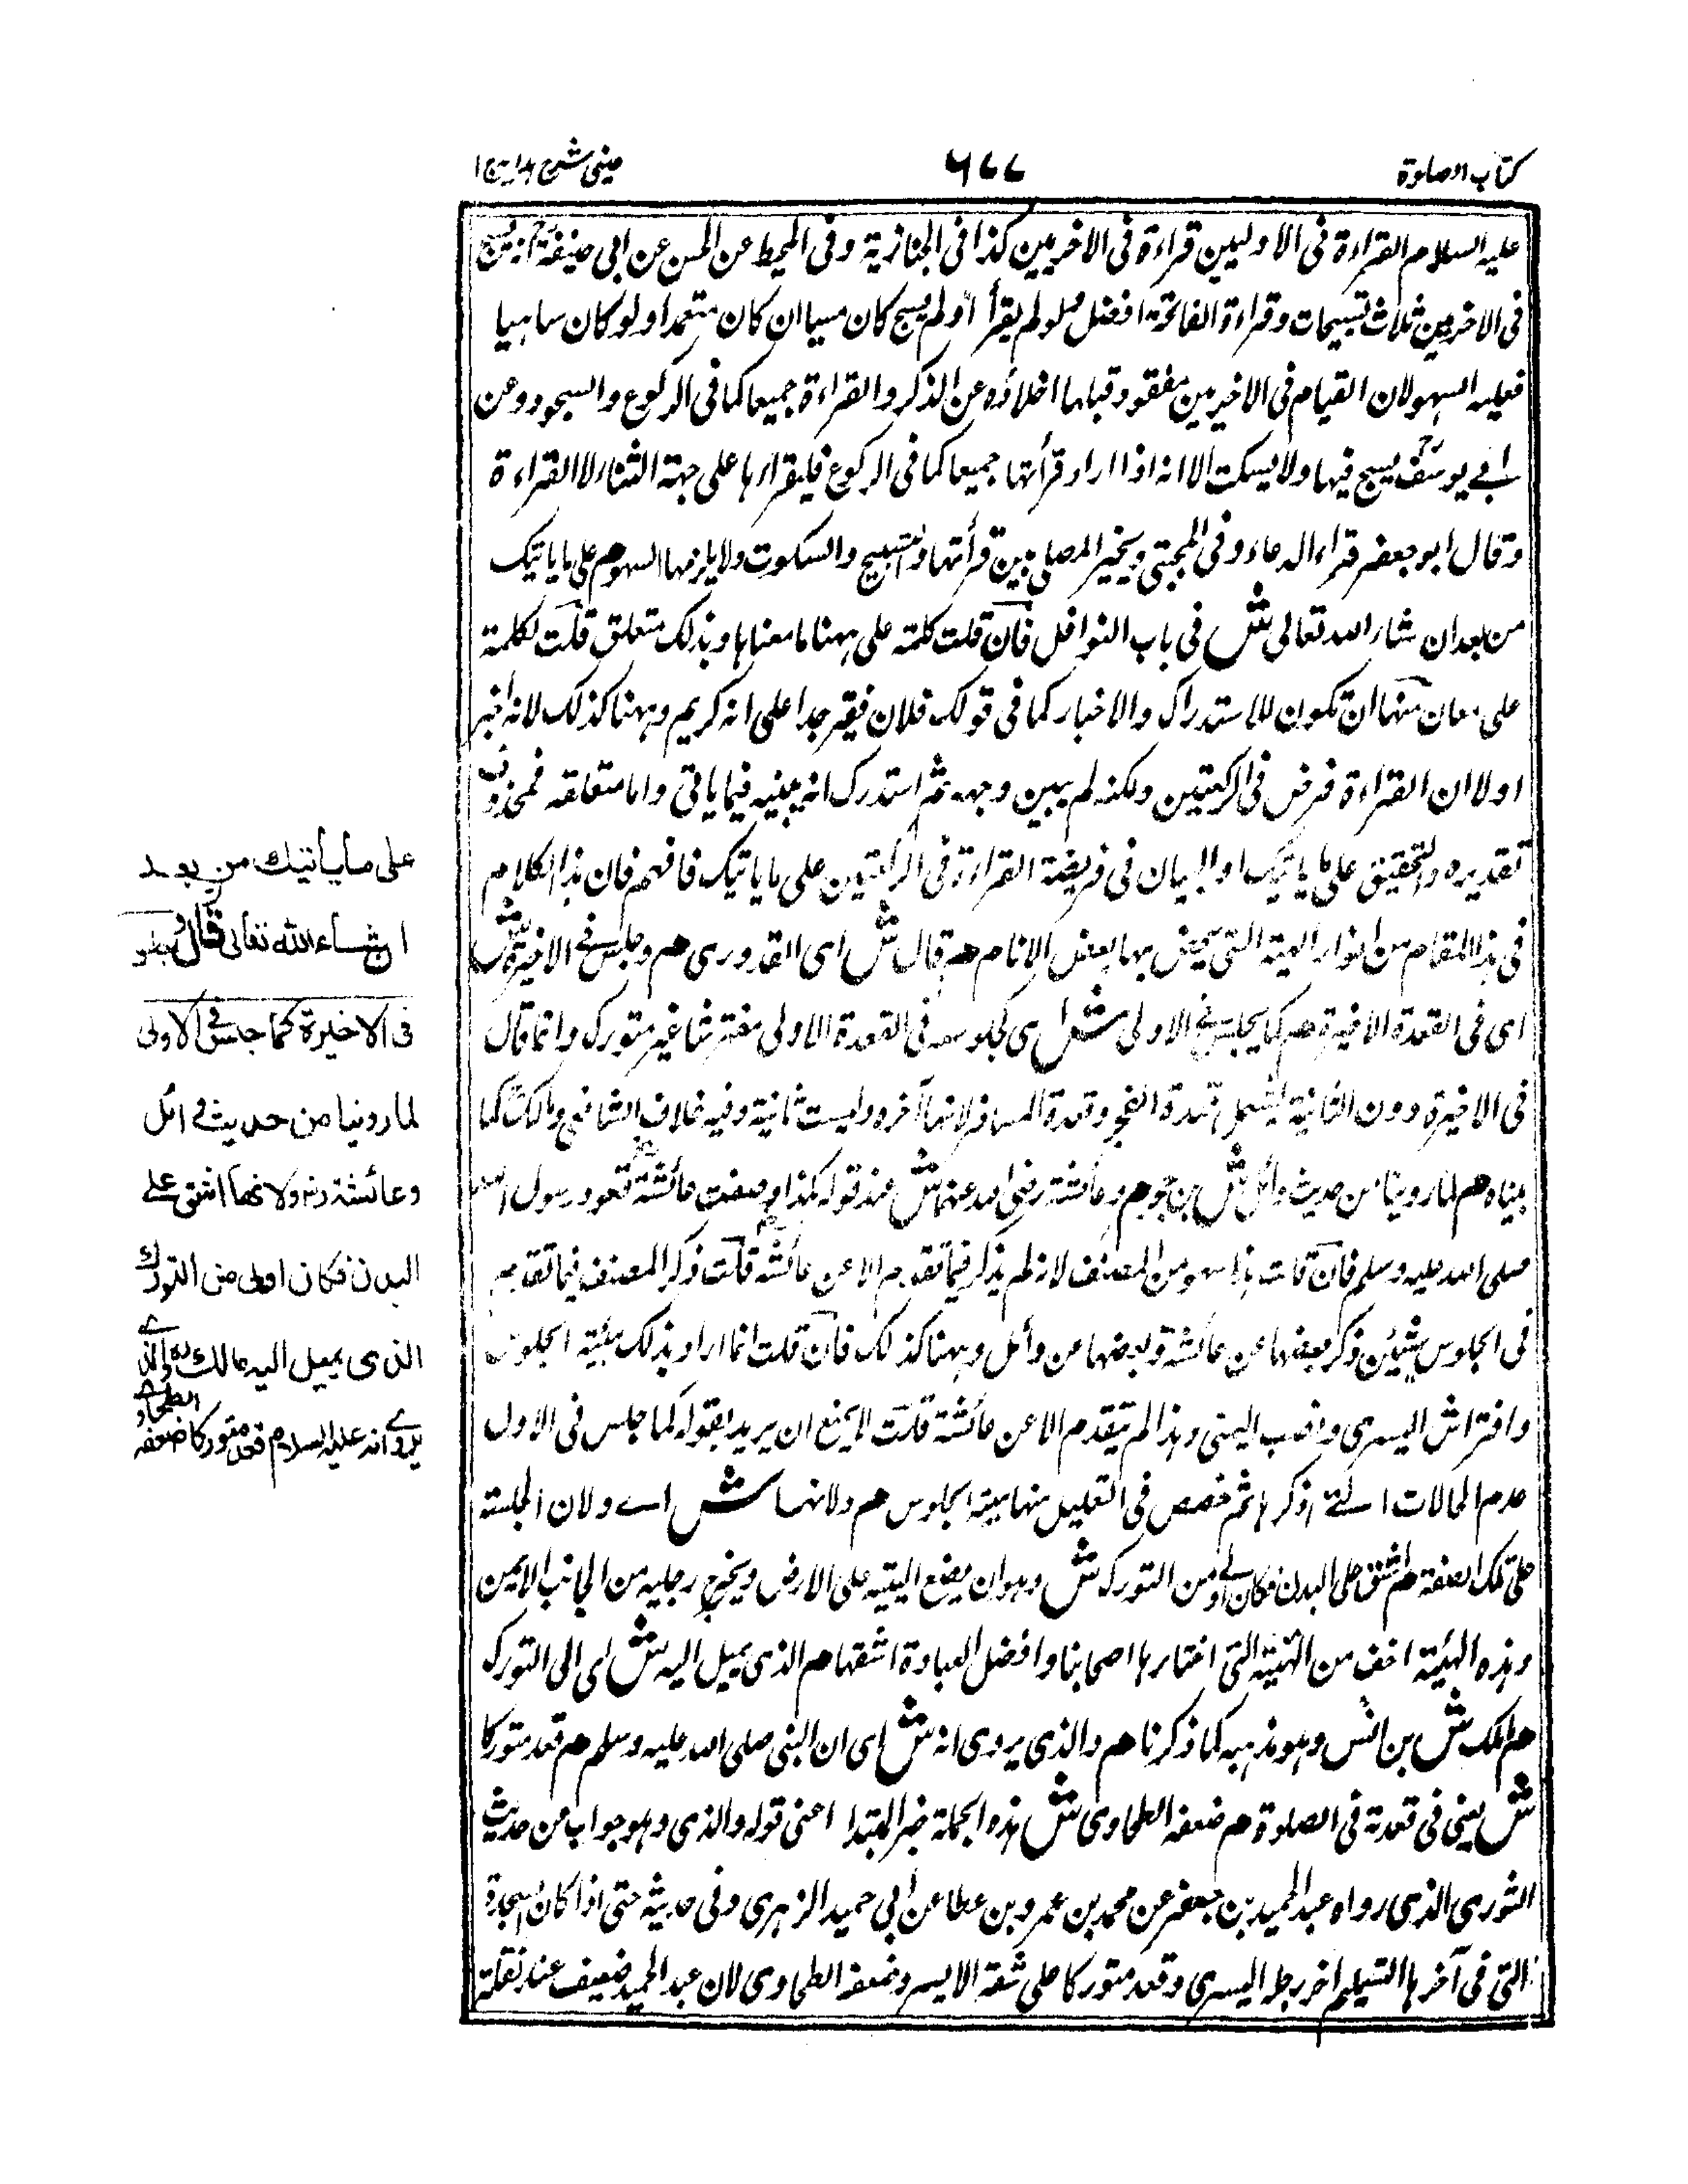 كتاب الصلوة
٦٧٧
عينى شرح هداية ج ١
عليه السلام القراءة فى الاوليين قراءة فى الاخريين كذا فى الجنازية وفى المحيط عن الحسن عن ابى حنيفة
فى الاخريين ثلاث تسبيحات وقراءة الفاتحة افضل ولو لم يقرأ او لم يسبح كان مسيا ان كان متعمدا ولو كان ساهيا
فعليه السهو لان القيام فى الاخيرين مقصود اخلاؤه عن الذكر والقراءة جميعا كما فى الركوع والسجود وعن
ابى يوسف يسبح فيها ولا يسكت الا انه اذا اراد قرأتها جميعا كما فى الركوع فليقراءها على جهة الثناء لا القراءة
وقال ابو جعفر قراء الدعاء وفى المجتبى ويخير المصلى بين قرأتها والتسبيح والسكوت ولا يلزمها السهو هم على ما ياتيك
من بعد ان شاء الله تعالى ش فى باب النوافل فان قلت كلمة على ههنا ما معناها وبذلك متعلق قلت لكلمة
على معان منها ان تكون للاستدراك والاخبار كما فى قولك فلان فقير جدا على انه كريم وههنا كذلك لانه اخبر
اولا ان القراءة فرض فى الركعتين ولكنه لم يبين وجهه ثم استدرك انه يبينه فيما ياتى واما متعلقه فمحذوف
تقديره والتحقيق على ما ياتيك او البيان فى فريضة القراءة فى الركعتين على ما ياتيك فافهم فان هذا الكلام
فى هذا المقام من انوار الهية التى يختص بها بعض الانام هم قال ش اى القدورى هم وجلس فى الاخيرة ش
اى فى القعدة الاخيرة هم كما يجلس فى الاولى ش اى كجلوسه فى القعدة الاولى مفترشا غير متورك وانما قال
فى الاخيرة دون الثانية ليشمل قعدة الفجر وقعدة المسافر لانها آخره وليست ثانية وفيه خلاف الشافعى ومالك كما
بيناه هم لما روينا من حديث وائل ش بن حجر هم وعائشة رضى الله عنهما ش عند قوله هكذا وصفت عائشة قعود رسول الله
صلى الله عليه وسلم فان قلت هذا سهو من المصنف لانه لم يذكر فيما تقدم الا عن عائشة قلت ذكر المصنف فيما تقدم
فى الجلوس شيئين ذكر بعضها عن عائشة وبعضها عن وائل وههنا كذلك فان قلت انما اراد بذلك هيئة الجلوس
وافتراش اليسرى ونصب اليمنى وهذا لم يتقدم الا عن عائشة قلت لا يمنع ان يريد بقوله كما جلس فى الاول
الحالات التى ذكرها ثم خصص فى التعليل منها هيئة الجلوس هم ولانها ش اى ولان الجلسة
على تلك الصفة هم اشق على البدن فكان اولى من التورك ش وهو ان يضع اليتيه على الارض ويخرج رجليه من الجانب الايمن
وهذه الهيئة اخف من الهيئة التى اختارها اصحابنا وافضل العبادة اشقها هم الذى يميل اليه ش اى الى التورك
هم مالك ش بن انس وهو مذهبه كما ذكرنا هم والذى يروى انه ش اى ان النبى صلى الله عليه وسلم هم قعد متوركا
ش يعنى فى قعدته فى الصلوة هم ضعفه الطحاوى ش هذه الجملة خبر المبتدا اعنى قوله والذى وهو جواب من حديث
الثورى الذى رواه عبد الحميد بن جعفر عن محمد بن عمرو بن عطا عن ابى حميد الزهرى وفى حديثه حتى اذا كان السجدة
التى فى آخرها التسليم اخر رجله اليسرى وقعد متوركا على شقه الايسر وضعفه الطحاوى لان عبد الحميد ضعيف عند نقلة
على ما يأتيك من بعد
ان شاء الله تعالى قال وجلس
فى الاخيرة كما جلس فى الاولى
لما روينا من حديث وائل
وعائشة رض ولانها اشق على
البدن فكان اولى من التورك
الذى يميل اليه مالك ره والذى
يروى انه عليه السلام قعد متوركا ضعفه
الطحاوى